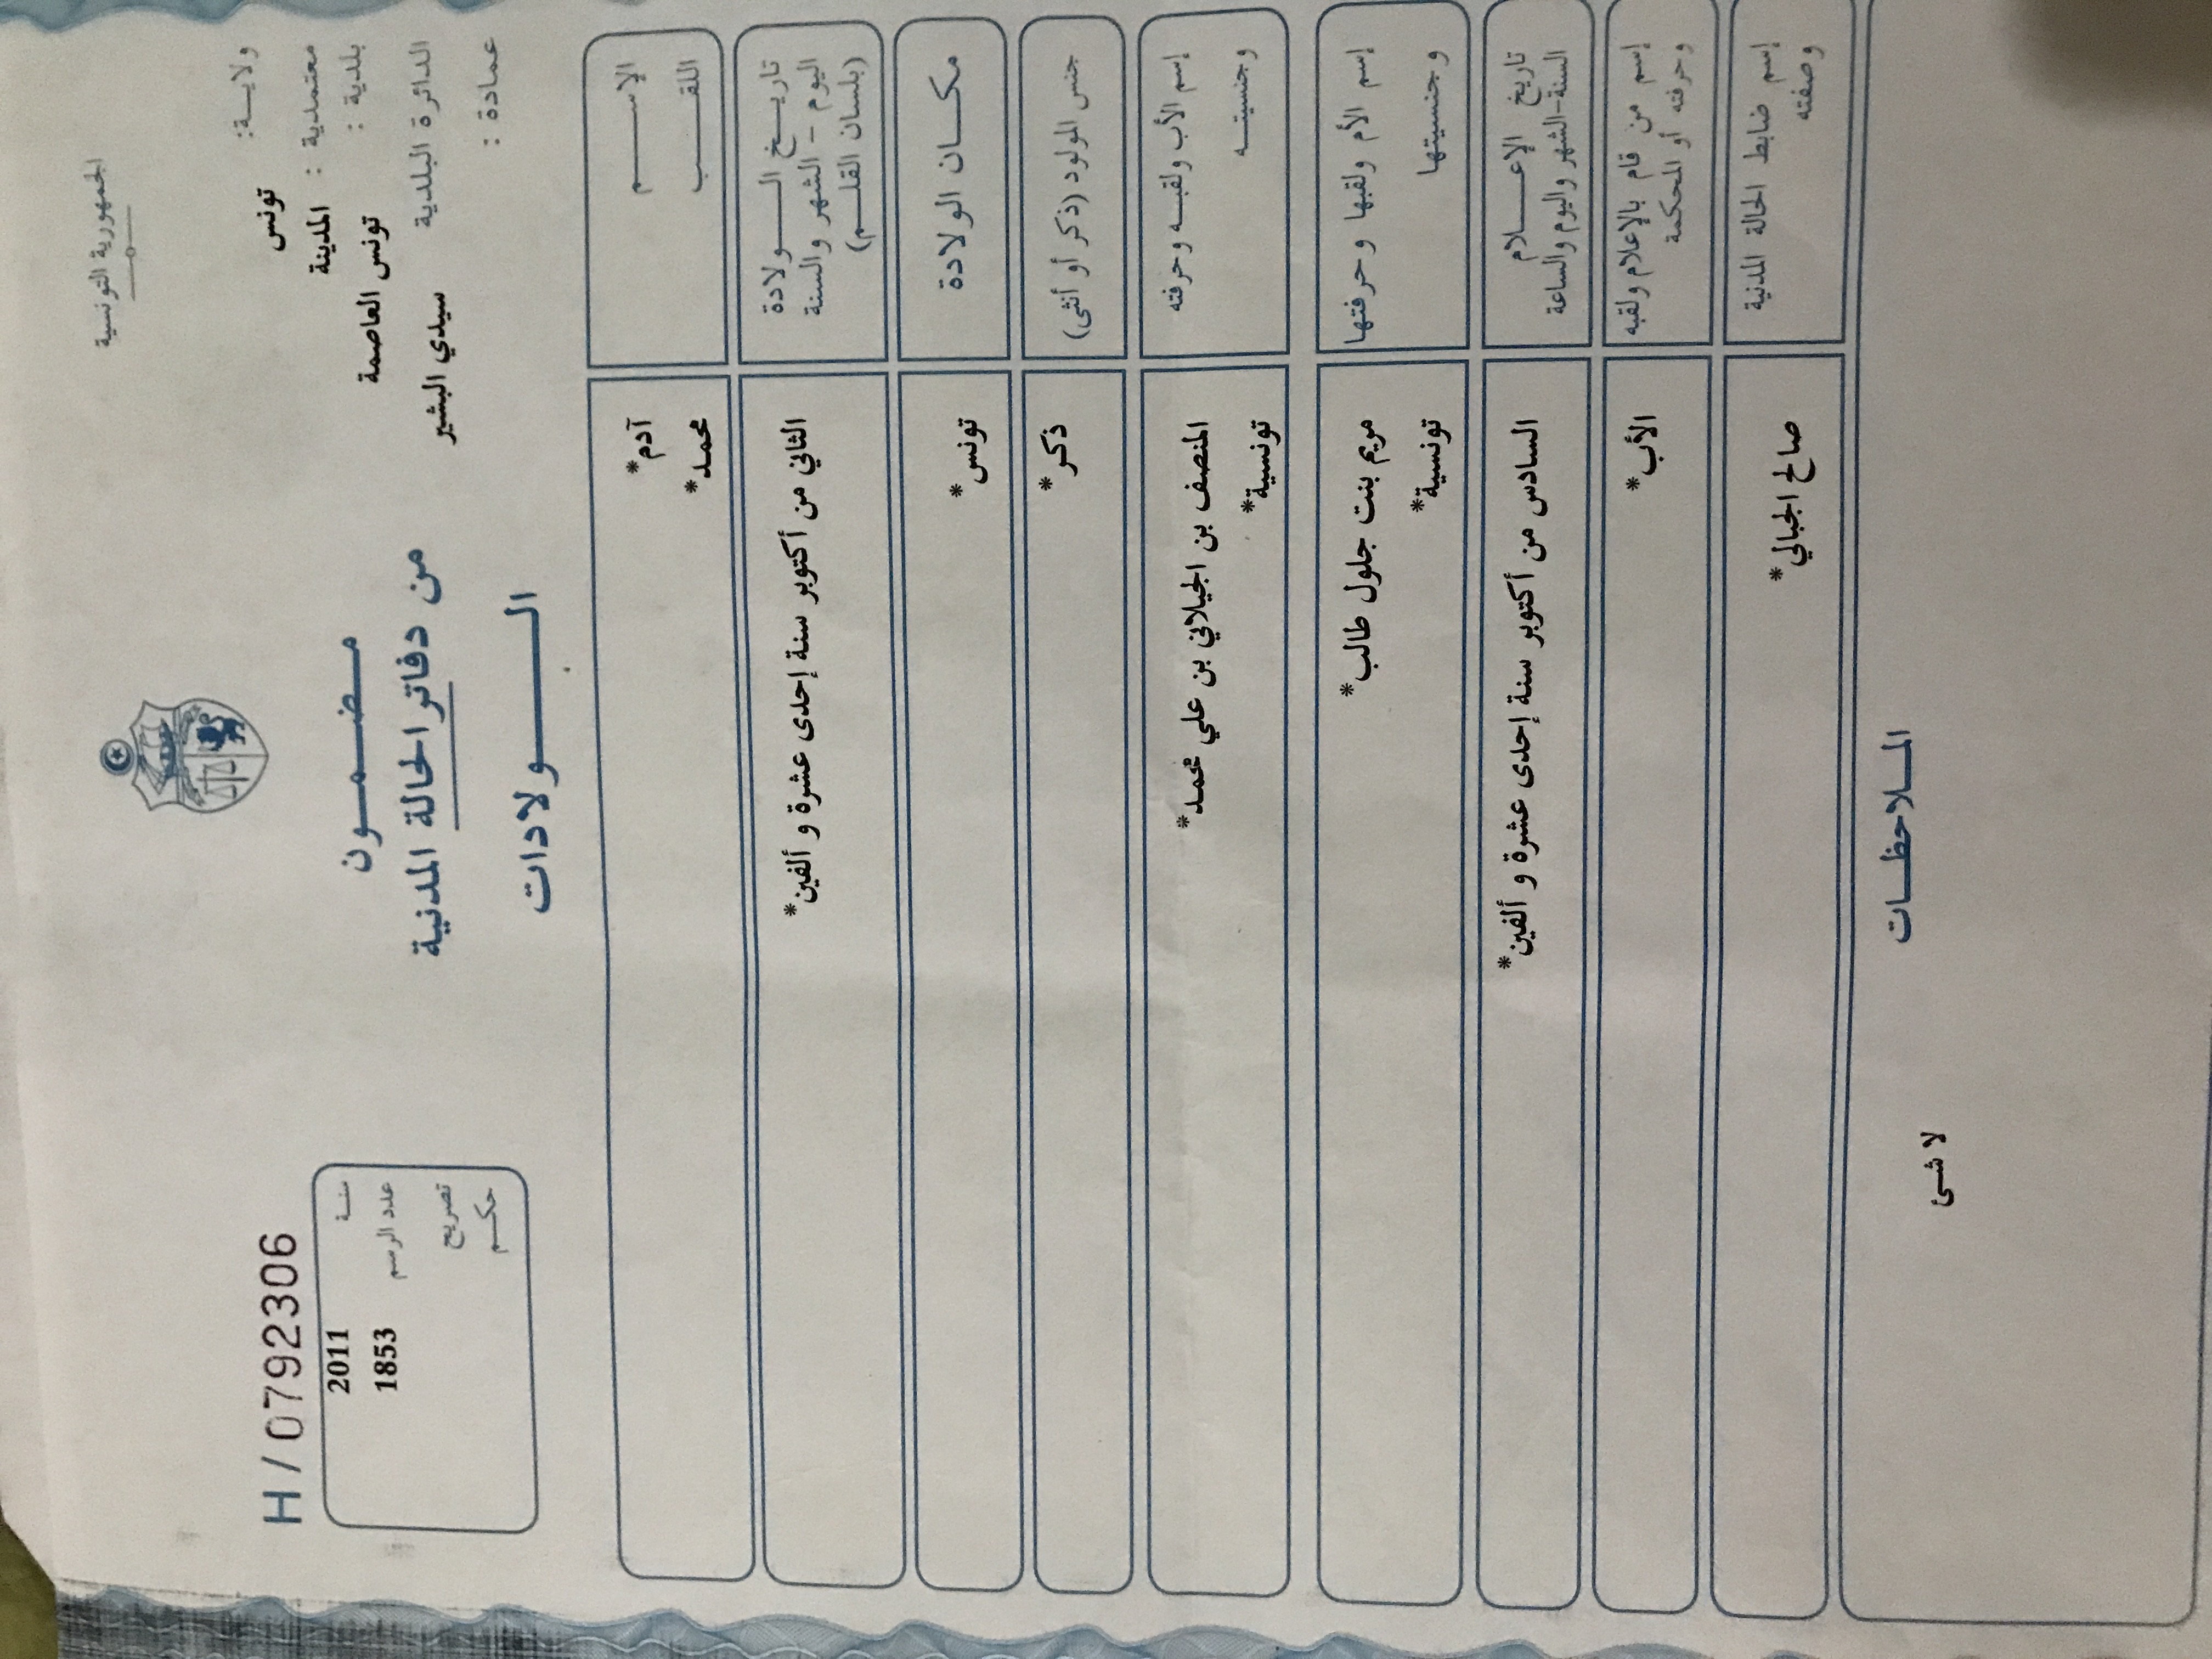 الجمهورية التونسية
ولايـــة: تونس
معتمدية : المدينة
بلدية : تونس العاصمة
الدائرة البلدية سيدي البشير
عمادة :
مـــضـــمـــون
من دفاتر الحالة المدنية
الـــــولادات
H / 0792306
سنـــة 2011
عدد الرسم 1853
تصريح
حكـــم
الإســـــم آدم*
اللقـــــب محمد*
تاريـــخ الـــــولادة
اليوم - الشهر والسنة
(بلسان القلـــم)
الثاني من أكتوبر سنة إحدى عشرة و ألفين*
مكـــان الولادة تونس*
جنس المولود (ذكر أو أنثى) ذكر*
إسم الأب ولقبـــه وحرفته المنصف بن الجيلاني بن علي محمد*
وجنسيتـــه تونسية*
إسم الأم ولقبها وحرفتها مريم بنت جلول طالب*
وجنسيتها تونسية*
تاريخ الإعـــلام
السنة-الشهر واليوم والساعة
السادس من أكتوبر سنة إحدى عشرة و ألفين*
إسم من قام بالإعلام ولقبه
وحرفته أو المحكمة
الأب*
إسم ضابط الحالة المدنية
وصفته
صالح الجبالي*
المـــلاحظـــات
لا شئ